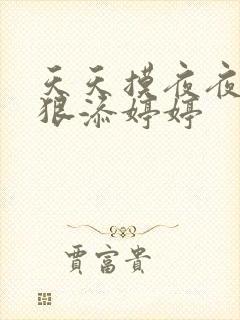 天天摸夜夜
狠添婷婷
贾富贵